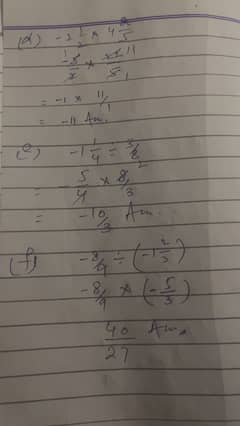 (d) -2 1/2 × 4 2/5
-5/2 × 22/5 11 1
= -1 × 11/1
= -11 Ans.
(e) -1 1/4 ÷ 3/8
= -5/4 × 8/3 2
= -10/3 Ans.
(f) -8/9 ÷ (-1 2/3)
-8/9 × (-5/3)
40/27 Ans.